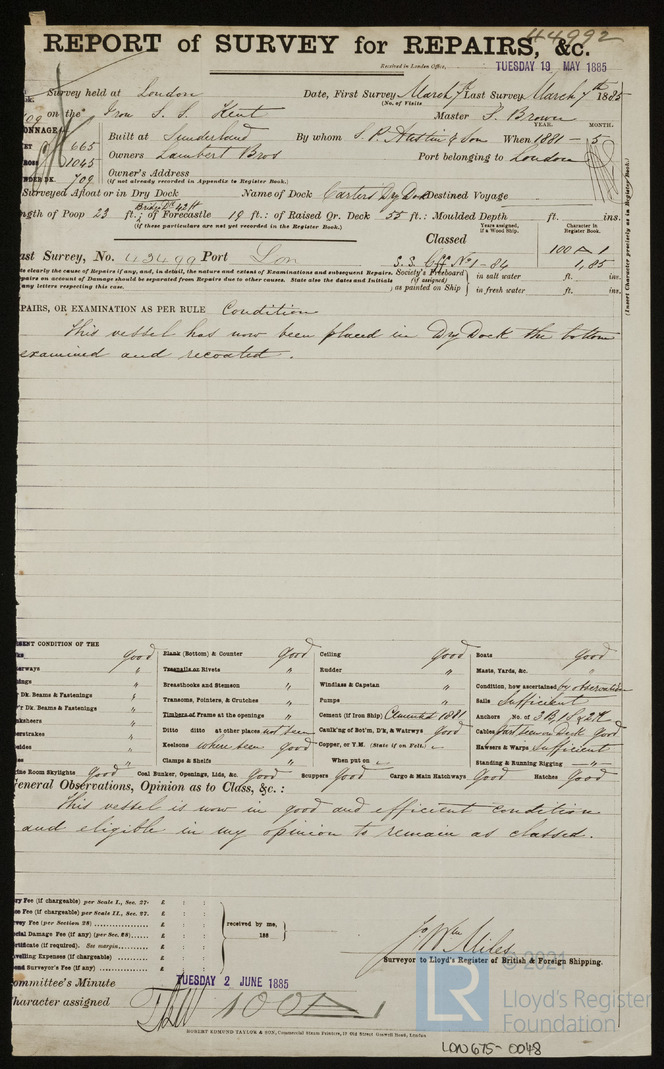 44992
REPORT of SURVEY for REPAIRS, &c.
Received in London Office, TUESDAY 19 MAY 1885
Survey held at London Date, First Survey March 7th Last Survey March 7th 1885
(No. of Visits
on the Iron S. S. Kent Master F. Brown
YEAR. MONTH.
ONNAGE Built at Sunderland By whom S. P. Austin & Son When 1881 - 5
665
1045 Owners Lambert Bros Port belonging to London
709 Owner's Address
(if not already recorded in Appendix to Register Book.)
Surveyed Afloat or in Dry Dock Name of Dock Carters Dry Dock Destined Voyage
Bridge Dk 42 ft
ngth of Poop 23 ft.; of Forecastle 19 ft.: of Raised Qr. Deck 55 ft.: Moulded Depth ft. ins.
(If these particulars are not yet recorded in the Register Book.)
Classed
Years assigned, if a Wood Ship.
Character in Register Book.
100 A 1
ast Survey, No. 43499 Port Lon S. S. No 1-84 1,85
te clearly the cause of Repairs if any, and, in detail, the nature and extent of Examinations and subsequent Repairs.
epairs on account of Damage should be separated from Repairs due to other causes. State also the dates and Initials
any letters respecting this case.
Society's Freeboard (if assigned) as painted on Ship
in salt water ft. ins.
in fresh water ft. ins.
(Insert Character precisely as in Register Book.)
PAIRS, OR EXAMINATION AS PER RULE Condition
This vessel has now been placed in Dry Dock the bottom
examined and recoated.
SENT CONDITION OF THE
good Plank (Bottom) & Counter good Ceiling good Boats good
terways " Treenails or Rivets " Rudder " Masts, Yards, &c. "
" Breasthooks and Stemson " Windlass & Capstan " Condition, how ascertained by observation
Dk. Beams & Fastenings " Transoms, Pointers, & Crutches " Pumps " Sails Sufficient
r Dk. Beams & Fastenings " Timbers or Frame at the openings " Cement (if Iron Ship) Cemented 1881 Anchors No. of 3 B, 1 S & 2 K
nksheers " Ditto ditto at other places not seen Caulk'ng of Bot'm, D'k, & Watrwys good Cables good
erstrakes " Keelsons where seen good Copper, or Y.M. (State if on Felt.) Hawsers & Warps Sufficient
" Clamps & Shelfs " When put on Standing & Running Rigging "
ine Room Skylights Good Coal Bunker, Openings, Lids, &c. Good Scuppers Good Cargo & Main Hatchways Good Hatches Good
General Observations, Opinion as to Class, &c.:
This vessel is now in good and efficient condition
and eligible in my opinion to remain as classed.
ry Fee (if chargeable) per Scale I., Sec. 27. £ : :
ee Fee (if chargeable) per Scale II., Sec. 27. £ : :
vey Fee (per Section 28) £ : :
ecial Damage Fee (if any) (per Sec. 28) £ : :
rtificate (if required). See margin £ : :
velling Expenses (if chargeable) £ : :
ond Surveyor's Fee (if any) £ : :
received by me,
188
Jo Wm Miles
Surveyor to Lloyd's Register of British & Foreign Shipping.
ommittee's Minute TUESDAY 2 JUNE 1885
haracter assigned 100 A 1
ROBERT EDMUND TAYLOR & SON, Commercial Steam Printers, 19 Old Street Goswell Road, London
© 2021
LR
Lloyd's Register
Foundation
LON675-0048